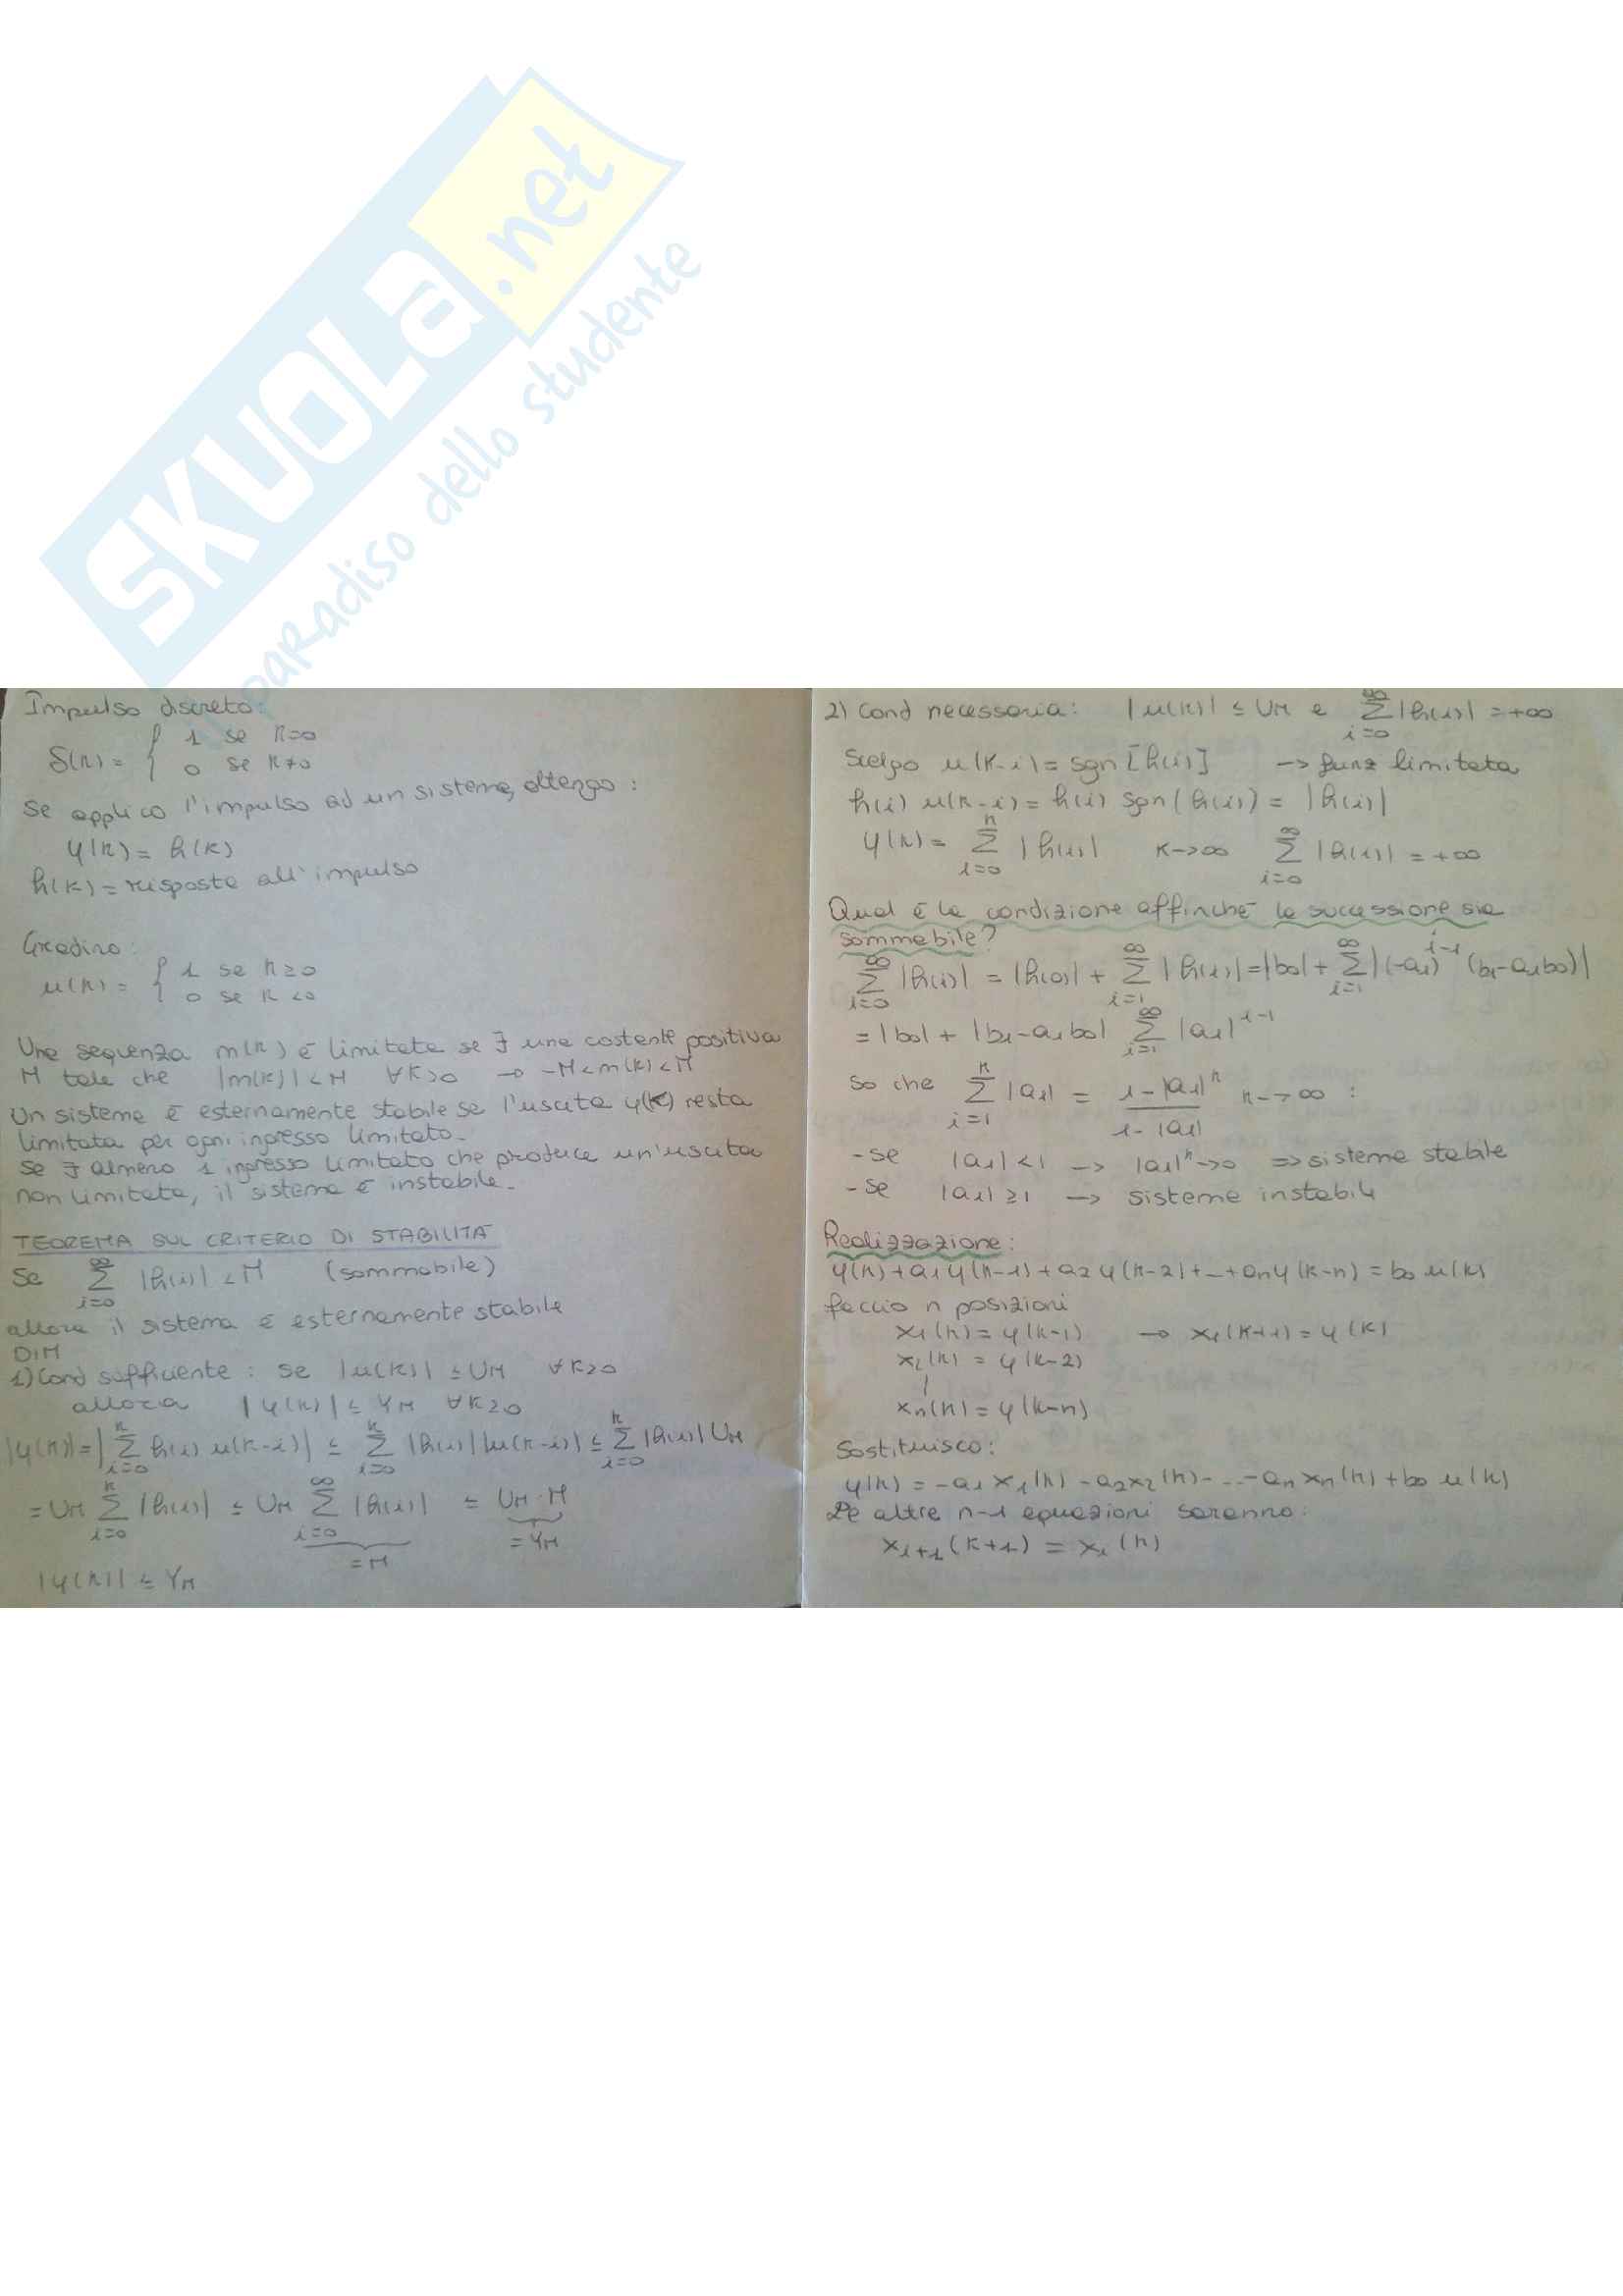 SKUOLA.net
paradiso dello studente
Impulso discreto:
δ(k) = { 1 se k=0
0 se k≠0
Se applico l'impulso ad un sistema, ottengo:
y(k) = h(k)
h(k) = risposta all'impulso
Gradino:
u(k) = { 1 se k≥0
0 se k<0
Una sequenza m(k) è limitata se ∃ una costante positiva
M tale che |m(k)| < M ∀k>0 → -M<m(k)<M
Un sistema è esternamente stabile se l'uscita y(k) resta
limitata per ogni ingresso limitato.
Se ∃ almeno 1 ingresso limitato che produce un'uscita
non limitata, il sistema è instabile.
TEOREMA SUL CRITERIO DI STABILITÀ
Se ∑_{i=0}^{∞} |h(i)| < M (sommabile)
allora il sistema è esternamente stabile
DIM
1) Cond sufficiente: se |u(k)| ≤ U_M ∀k≥0
allora |y(k)| ≤ Y_M ∀k≥0
|y(k)| = |∑_{i=0}^{k} h(i) u(k-i)| ≤ ∑_{i=0}^{k} |h(i)| |u(k-i)| ≤ ∑_{i=0}^{k} |h(i)| U_M
= U_M ∑_{i=0}^{k} |h(i)| ≤ U_M ∑_{i=0}^{∞} |h(i)| ≤ U_M · M
= M = Y_M
|y(k)| ≤ Y_M
2) Cond necessaria: |u(k)| ≤ U_M e ∑_{i=0}^{∞} |h(i)| = +∞
Scelgo u(k-i) = sgn [h(i)] → funz limitata
h(i) u(k-i) = h(i) sgn(h(i)) = |h(i)|
y(k) = ∑_{i=0}^{k} |h(i)| k→∞ ∑_{i=0}^{∞} |h(i)| = +∞
Qual è la condizione affinché la successione sia
sommabile?
∑_{i=0}^{∞} |h(i)| = |h(0)| + ∑_{i=1}^{∞} |h(i)| = |b0| + ∑_{i=1}^{∞} |(-a1)^{i-1} (b1-a1b0)|
= |b0| + |b1-a1b0| ∑_{i=1}^{∞} |a1|^{i-1}
So che ∑_{i=1}^{k} |a1| = (1-|a1|^k)/(1-|a1|) k→∞ :
- se |a1| < 1 → |a1|^k → 0 ⇒ sistema stabile
- se |a1| ≥ 1 → sistema instabile
Realizzazione:
y(k) + a1 y(k-1) + a2 y(k-2) + ... + an y(k-n) = b0 u(k)
faccio n posizioni
x1(k) = y(k-1) → x1(k+1) = y(k)
x2(k) = y(k-2)
|
xn(k) = y(k-n)
Sostituisco:
y(k) = -a1 x1(k) - a2 x2(k) - ... - an xn(k) + b0 u(k)
Le altre n-1 equazioni saranno:
x_{i+1}(k+1) = x_i(k)